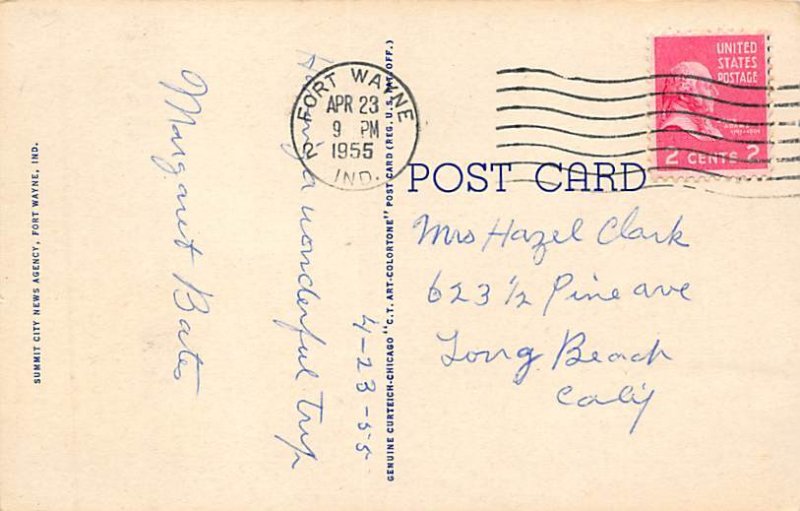 4-23-55
Having a wonderful trip
Margaret Bates
SUMMIT CITY NEWS AGENCY, FORT WAYNE, IND.
GENUINE CURTEICH-CHICAGO "C.T. ART-COLORTONE" POST CARD (REG. U.S. PAT. OFF.)
FORT WAYNE
APR 23
9 PM
1955
2
IND.
UNITED
STATES
POSTAGE
ADAMS
2 CENTS 2
POST CARD
Mrs Hazel Clark
623 ½ Pine ave
Long Beach
Calif